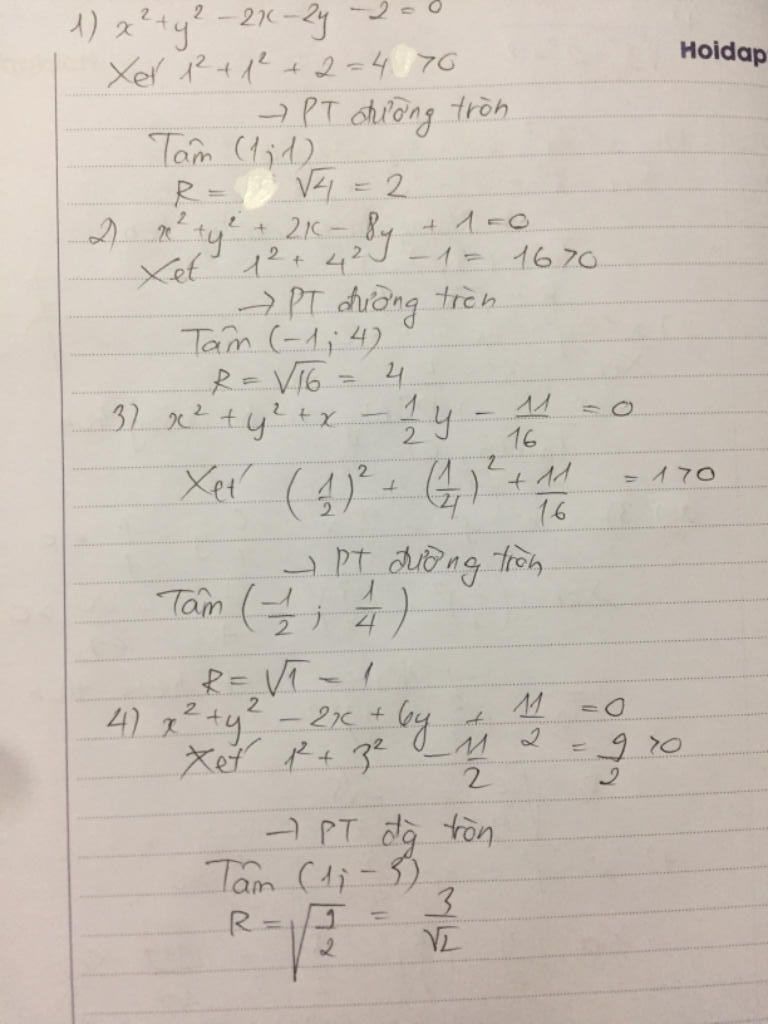 1) x² + y² - 2x - 2y - 2 = 0
Hoidap
Xét 1² + 1² + 2 = 4 > 0
→ PT đường tròn
Tâm (1; 1)
R = √4 = 2
2) x² + y² + 2x - 8y + 1 = 0
Xét 1² + 4² - 1 = 16 > 0
→ PT đường tròn
Tâm (-1; 4)
R = √16 = 4
3) x² + y² + x - 1/2 y - 11/16 = 0
Xét (1/2)² + (1/4)² + 11/16 = 1 > 0
→ PT đường tròn
Tâm (-1/2; 1/4)
R = √1 = 1
4) x² + y² - 2x + 6y + 11/2 = 0
Xét 1² + 3² - 11/2 = 9/2 > 0
→ PT đg tròn
Tâm (1; -3)
R = √(9/2) = 3/√2